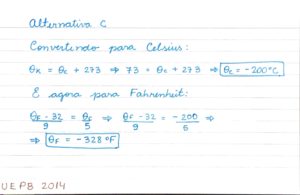 Alternativa C
Convertendo para Celsius:
θK = θC + 273 ⇒ 73 = θC + 273 ⇒ θC = -200°C
E agora para Fahrenheit:
θF - 32 / 9 = θC / 5 ⇒ θF - 32 / 9 = -200 / 5 ⇒
⇒ θF = -328°F
UEPB 2014